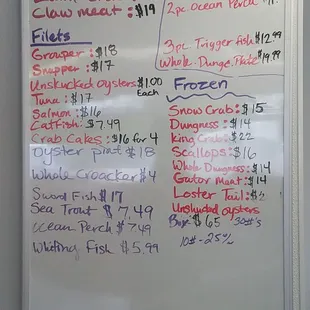 Claw meat : $19
Filets
Grouper : $18
Snapper : $17
Unshucked oysters $1.00 Each
Tuna : $17
Salmon : $16
Catfish : $7.49
Crab Cakes : $16 for 4
Oyster pint $18
Whole Croacker $4
Sword Fish $17
Sea Trout $7.49
Ocean Perch $7.49
Whiting Fish $5.99
2pc Ocean Perch
3pc Trigger fish $12.99
Whole Dunge. Plate $19.99
Frozen
Snow Crab : $15
Dungness : $14
King Crab : $22
Scallops : $16
Whole Dungness : $14
Gator Meat : $14
Loster Tail : $
Unshucked oysters
Box $65 30#'s
10# - 25%